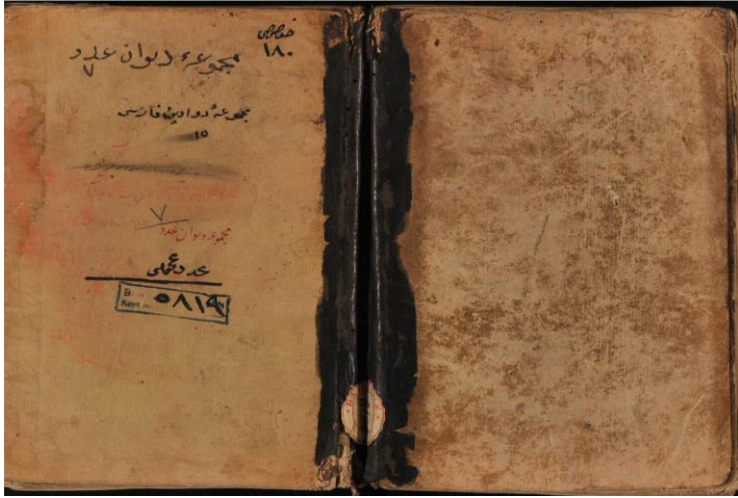 خصوصی
١٨٠
مجموعهٔ دیوان عدد
٧
مجموعهٔ دواوین فارسی
١٥
٧
مجموعه دیوان عدد
عدد عمومی
٥٨١٩